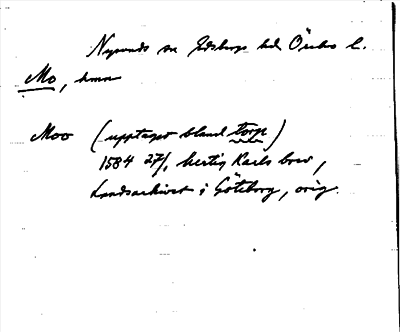 Nysunds sn Edsbergs hd Örebro l.
Mo, hmn
Moo (upptaget bland torp)
1584 27/1 hertig Karls brev,
Landsarkivet i Göteborg, orig.